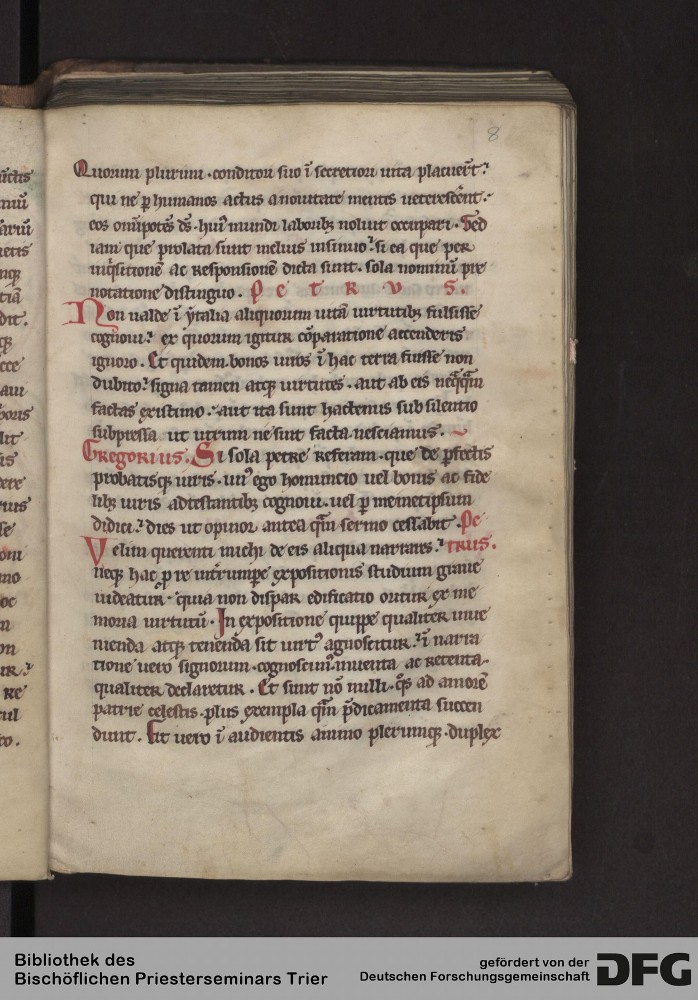 8
Quorum plurimi · conditori suo ī secretiori uita placuer̄t.
qui ne ꝑ humanos actus a nouitate mentis ueterescer̄ent.
eos om̄ipotēs d̄s · hui᷒ mundi laborib; noluit occupari · Sed
iam que prolata sunt melius insinuo. si ea que per
inq̇sitionē ac responsionē dicta sunt · sola nominū pre
notatione distinguo. P e t r v s.
Non ualde ī ytalia aliquorum uitā uirtutib; fulsisse
cognoui. ex quorum igitur cōparatione accenderis
ignoro. Et quidem bonos uiros ī hac terra fuisse non
dubito. signa tamen atq; uirtutes · aut ab eis neq̄q̄m
factas existimo. aut ita sunt hactenus sub silentio
subpressa ut utrum ne sint facta nesciamus.
Gregorius. Si sola petre referam · que de ꝑfectis
probatisq; uiris · un᷒ ego homuncio uel bonis ac fide
lib; uiris adtestantib; cognoui · uel ꝑ memetipsum
didici. dies ut opinor antea q̄m sermo cessabit. Pe
Velim querenti michi de eis aliqua narrares. trus.
neq; hac ꝓ re int̄rumpe expositionis studium graue
uideatur. quia non dispar edificatio oritur ex me
moria uirtutū. In expositione quippe qualiter inue
nienda atq; tenenda sit uirt᷒ agnoscitur. ī narra
tione uero signorum · cognoscim᷒ inuenta ac retenta
qualiter declaretur. Et sunt nō nulli · q̄s ad amorē
patrie celestis · plus exempla q̄m p̄dicamenta succen
dunt. Fit uero ī audientis animo plerumq; · duplex
Bibliothek des
Bischöflichen Priesterseminars Trier
gefördert von der
Deutschen Forschungsgemeinschaft
DFG